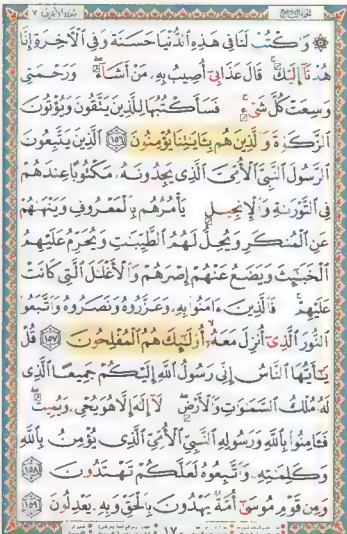 سورة الأعراف ٧
الجزء التاسع
۞ وَاكْتُبْ لَنَا فِي هَٰذِهِ الدُّنْيَا حَسَنَةً وَفِي الْآخِرَةِ إِنَّا
هُدْنَا إِلَيْكَ ۚ قَالَ عَذَابِي أُصِيبُ بِهِ مَنْ أَشَاءُ ۖ وَرَحْمَتِي
وَسِعَتْ كُلَّ شَيْءٍ ۚ فَسَأَكْتُبُهَا لِلَّذِينَ يَتَّقُونَ وَيُؤْتُونَ
الزَّكَوٰةَ وَالَّذِينَ هُم بِـَٔايَٰتِنَا يُؤْمِنُونَ ١٥٦ الَّذِينَ يَتَّبِعُونَ
الرَّسُولَ النَّبِيَّ الْأُمِّيَّ الَّذِي يَجِدُونَهُ مَكْتُوبًا عِندَهُمْ
فِي التَّوْرَىٰةِ وَالْإِنجِيلِ يَأْمُرُهُم بِالْمَعْرُوفِ وَيَنْهَىٰهُمْ
عَنِ الْمُنكَرِ وَيُحِلُّ لَهُمُ الطَّيِّبَٰتِ وَيُحَرِّمُ عَلَيْهِمُ
الْخَبَٰٓئِثَ وَيَضَعُ عَنْهُمْ إِصْرَهُمْ وَالْأَغْلَٰلَ الَّتِي كَانَتْ
عَلَيْهِمْ ۚ فَالَّذِينَ ءَامَنُوا بِهِ وَعَزَّرُوهُ وَنَصَرُوهُ وَاتَّبَعُوا
النُّورَ الَّذِي أُنزِلَ مَعَهُ ۙ أُولَٰٓئِكَ هُمُ الْمُفْلِحُونَ ١٥٧ قُلْ
يَٰٓأَيُّهَا النَّاسُ إِنِّي رَسُولُ اللَّهِ إِلَيْكُمْ جَمِيعًا الَّذِي
لَهُ مُلْكُ السَّمَٰوَٰتِ وَالْأَرْضِ ۖ لَآ إِلَٰهَ إِلَّا هُوَ يُحْيِي وَيُمِيتُ ۖ
فَـَٔامِنُوا بِاللَّهِ وَرَسُولِهِ النَّبِيِّ الْأُمِّيِّ الَّذِي يُؤْمِنُ بِاللَّهِ
وَكَلِمَٰتِهِ وَاتَّبِعُوهُ لَعَلَّكُمْ تَهْتَدُونَ ١٥٨
وَمِن قَوْمِ مُوسَىٰٓ أُمَّةٌ يَهْدُونَ بِالْحَقِّ وَبِهِ يَعْدِلُونَ ١٥٩
١٧٠